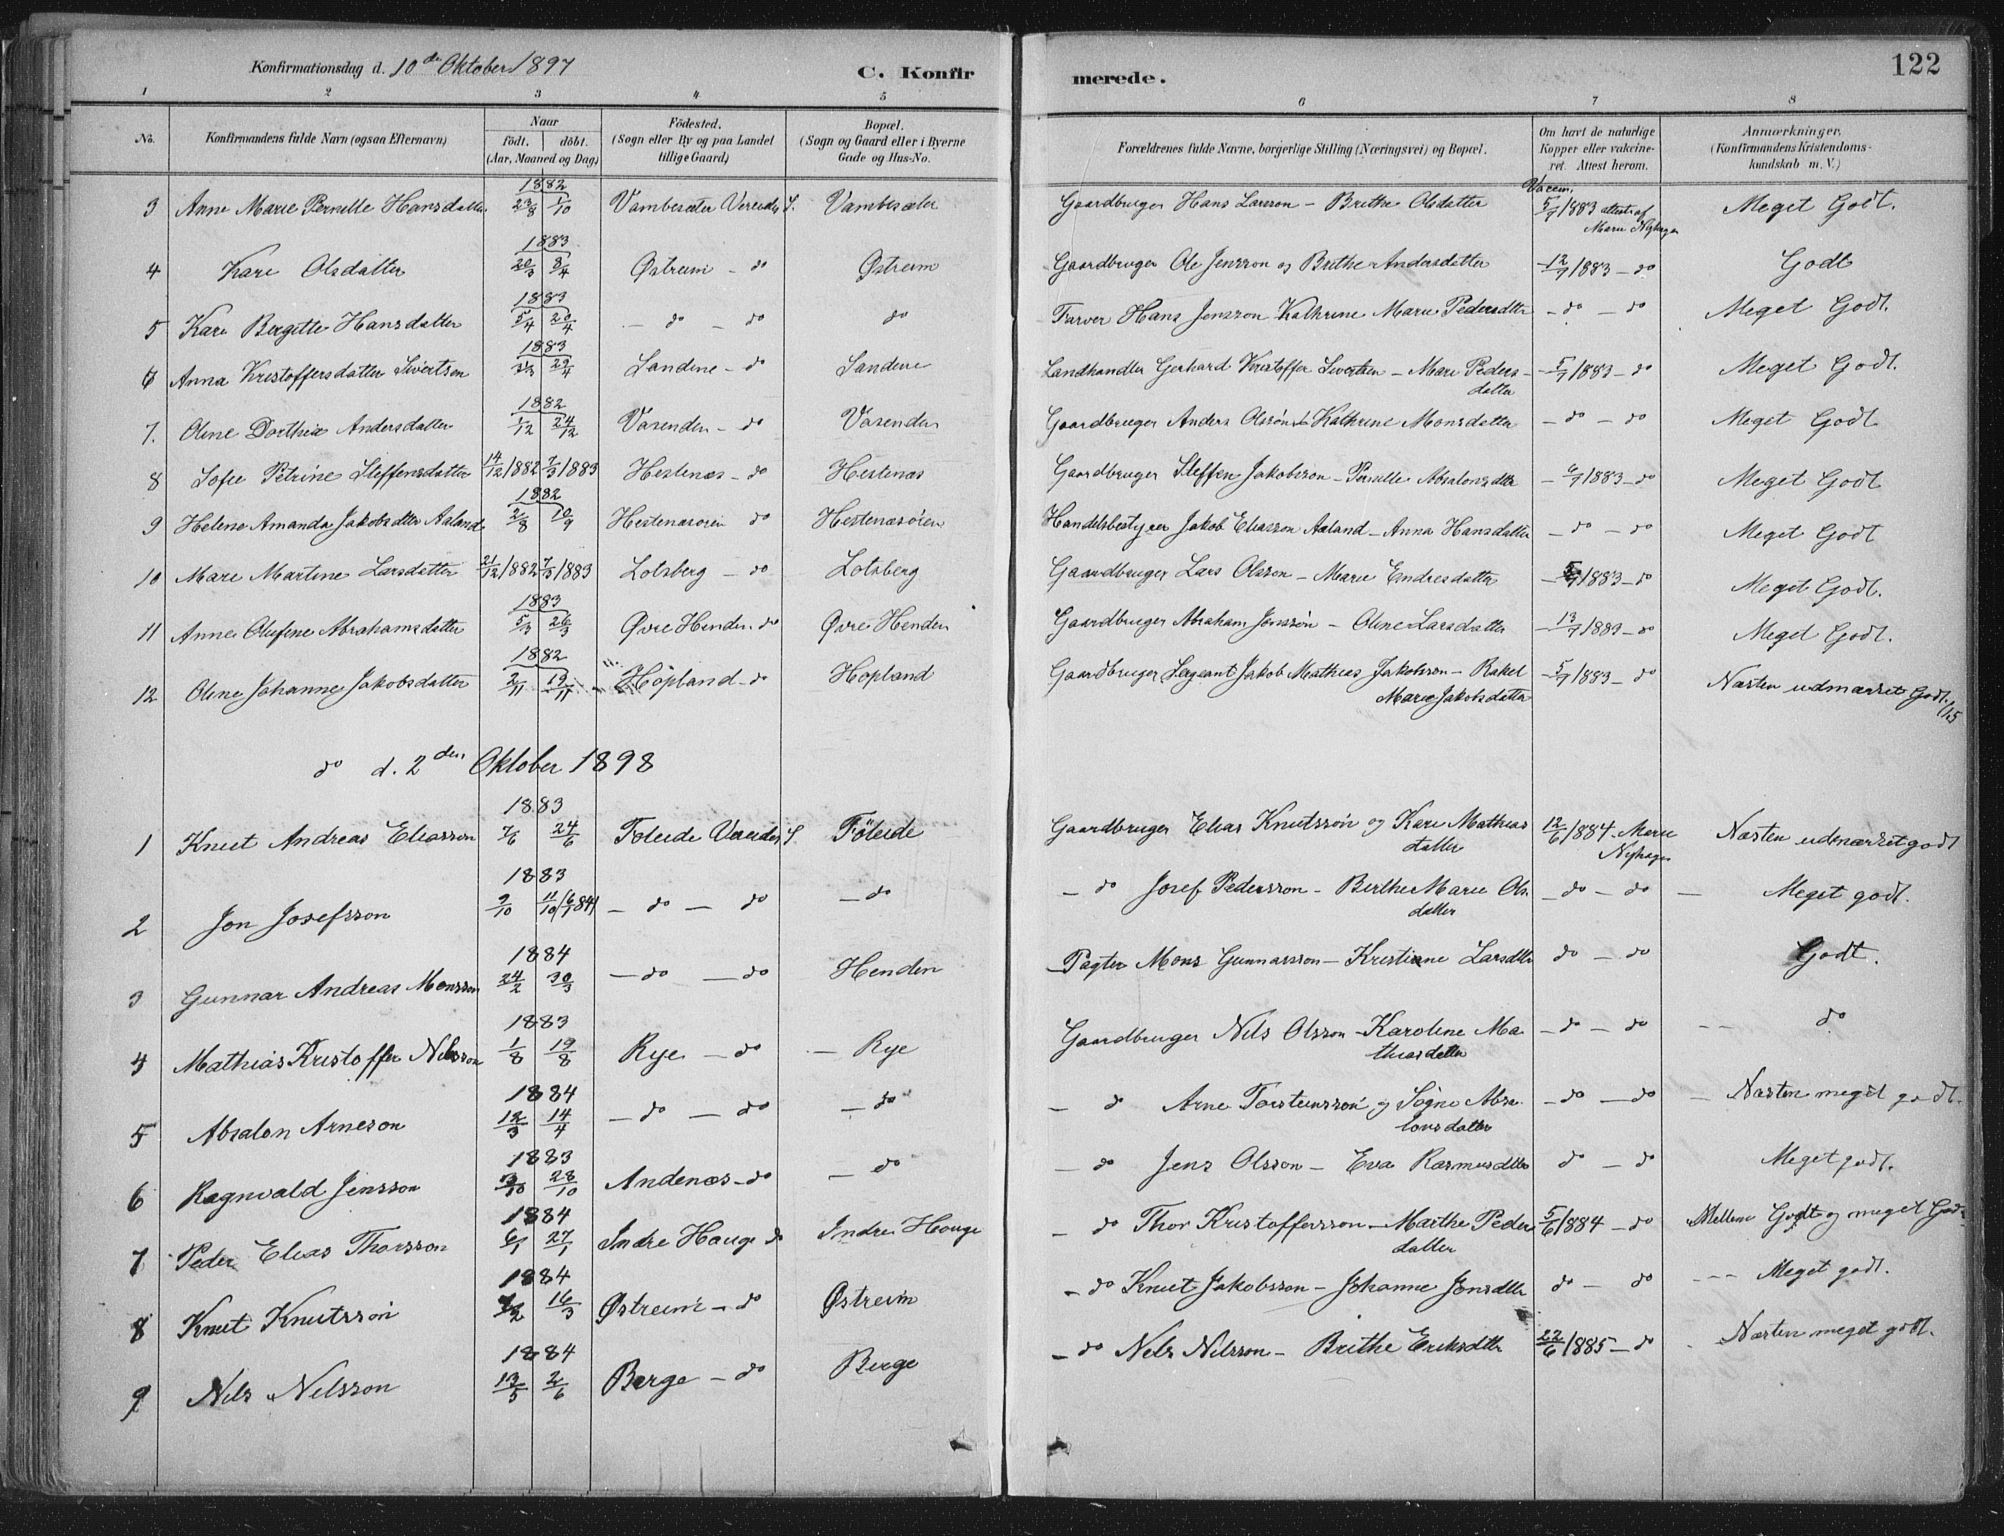 Konfirmationsdag d. 10de Oktober 1897 C. Konfirmerede. 122
1 2 3 4 5 6 7 8
No. Konfirmandens fulde Navn (ogsaa Efternavn) Naar födt. döbt. (Aar, Maaned og Dag) Födested. (Sogn eller By og paa Landet tillige Gaard) Bopæl. (Sogn og Gaard eller i Byerne Gade og Hus-No. Forældrenes fulde Navne, borgerlige Stilling (Næringsvei) og Bopæl. Om havt de naturlige Kopper eller vakcineret. Attest herom. Anmærkninger. (Konfirmandens Kristendomskundskab m. V.)
3 Anne Marie Pernille Hansdatter 1882 23/8 1/10 Vambesæter Vereides S. Vambesæter Gaardbruger Hans Larsson - Brithe Olsdatter Vaccin. 5/7 1883 attest af Marie Nyhagen Meget Godt.
4 Kari Olsdatter 1883 20/3 8/4 Østreim - do Østreim Gaardbruger Ole Jensson og Brithe Andersdatter 12/7 1883 - do Godt
5 Kari Bergitte Hansdatter 1883 5/4 20/4 - do - do do Farver Hans Jensson Kathrine Marie Pedersdtter - do - do Meget Godt.
6 Anna Kristoffersdatter Sivertsen 1883 29/4 Sandene - do Sandene Landhandler Gerhard Kristoffer Sivertsen - Mari Pedersdatter 5/7 1883 - do Meget Godt.
7. Oline Dorthea Andersdatter 1882 1/12 24/12 Vasenden - do Vasenden Gaardbruger Anders Olssøn Kathrine Monsdatter - do - do Meget Godt
8 Sofie Petrine Steffensdatter 14/12 1882 7/3 1883 Hestenæs - do Hestenæs Gaardbruger Steffen Jakobsson - Pernille Absalonsdtter - 6/7 1883 - do Meget Godt
9 Helene Amanda Jakobsdtter Aaland 1882 2/8 10/9 Hestenæsøren do Hestenæsøren Handelsbestyrer Jakob Eliasson Aaland - Anna Hansdatter - do - do Meget Godt
10 Mari Martine Larsdatter 21/12 1882 7/3 1883 Lotsberg - do Lotsberg Gaardbruger Lars Olsson - Marie Endresdatter - 5/7 1883 - do Meget Godt.
11 Anne Olufine Abrahamsdatter 1883 5/3 26/3 Øvre Henden do Øvre Henden Gaardbruger Abraham Jonssøn - Oline Larsdatter - 13/7 1883 - do Meget Godt.
12 Oline Johanne Jakobsdatter 1882 2/11 19/11 Hopland - do Hopland Gaardbruger Sergeant Jakob Mathias Jakobsson - Rakel Marie Jakobsdatter - 5/7 1883 - do Næsten udmærket Godt. 1,5
do d. 2den Oktober 1898
1 Knut Andreas Eliasson 1883 7/6 24/6 Føleide Vereides S. Føleide Gaardbruger Elias Knutssøn og Kari Mathiasdatter 12/6 1884. Marie Nyhagen Næsten udmærket godt
2 Jon Josefsson 1883 9/10 11/10 (6/1 84) - do - do - do - do Josef Pedersson - Berthe Marie Olsdatter - do - do - Meget godt.
3 Gunnar Andreas Monsson 1884 24/2 30/3 - do - do Henden Pagter Mons Gunnarsson - Kristiane Larsdtter do - do Godt.
4 Mathias Kristoffer Nelsson 1883 1/8 19/8 Rye - do - Rye Gaardbruger Nils Olsson - Karoline Mathiasdatter - do - do -- do
5 Absalon Arneson 1884 12/3 14/4 - do - do - do - do Arne Torsteinssøn og Søgne Absalonsdatter - do - do - Næsten meget godt.
6 Ragnvald Jensson 1883 13/10 28/10 Andenæs - do - do - do Jens Olsson - Eva Rasmusdtter do - do Meget godt.
7 Peder Elias Thorsson 1884 6/1 27/1 Indre Hauge do Indre Hauge - do Thor Kristoffersson - Marthe Pedersdatter 5/6 1884 - do Mellem Godt og meget Godt
8 Knut Knutssøn 1884 16/3 Østreim - do Østreim - do Knut Jakobsson - Johanne Jonsdtter do - do --- Meget godt.
9 Nils Nilsson 1884 13/5 2/6 Berge - do Berge - do Nels Nilsson - Brithe Eriksdtter 22/6 1885 - do Næsten meget godt.